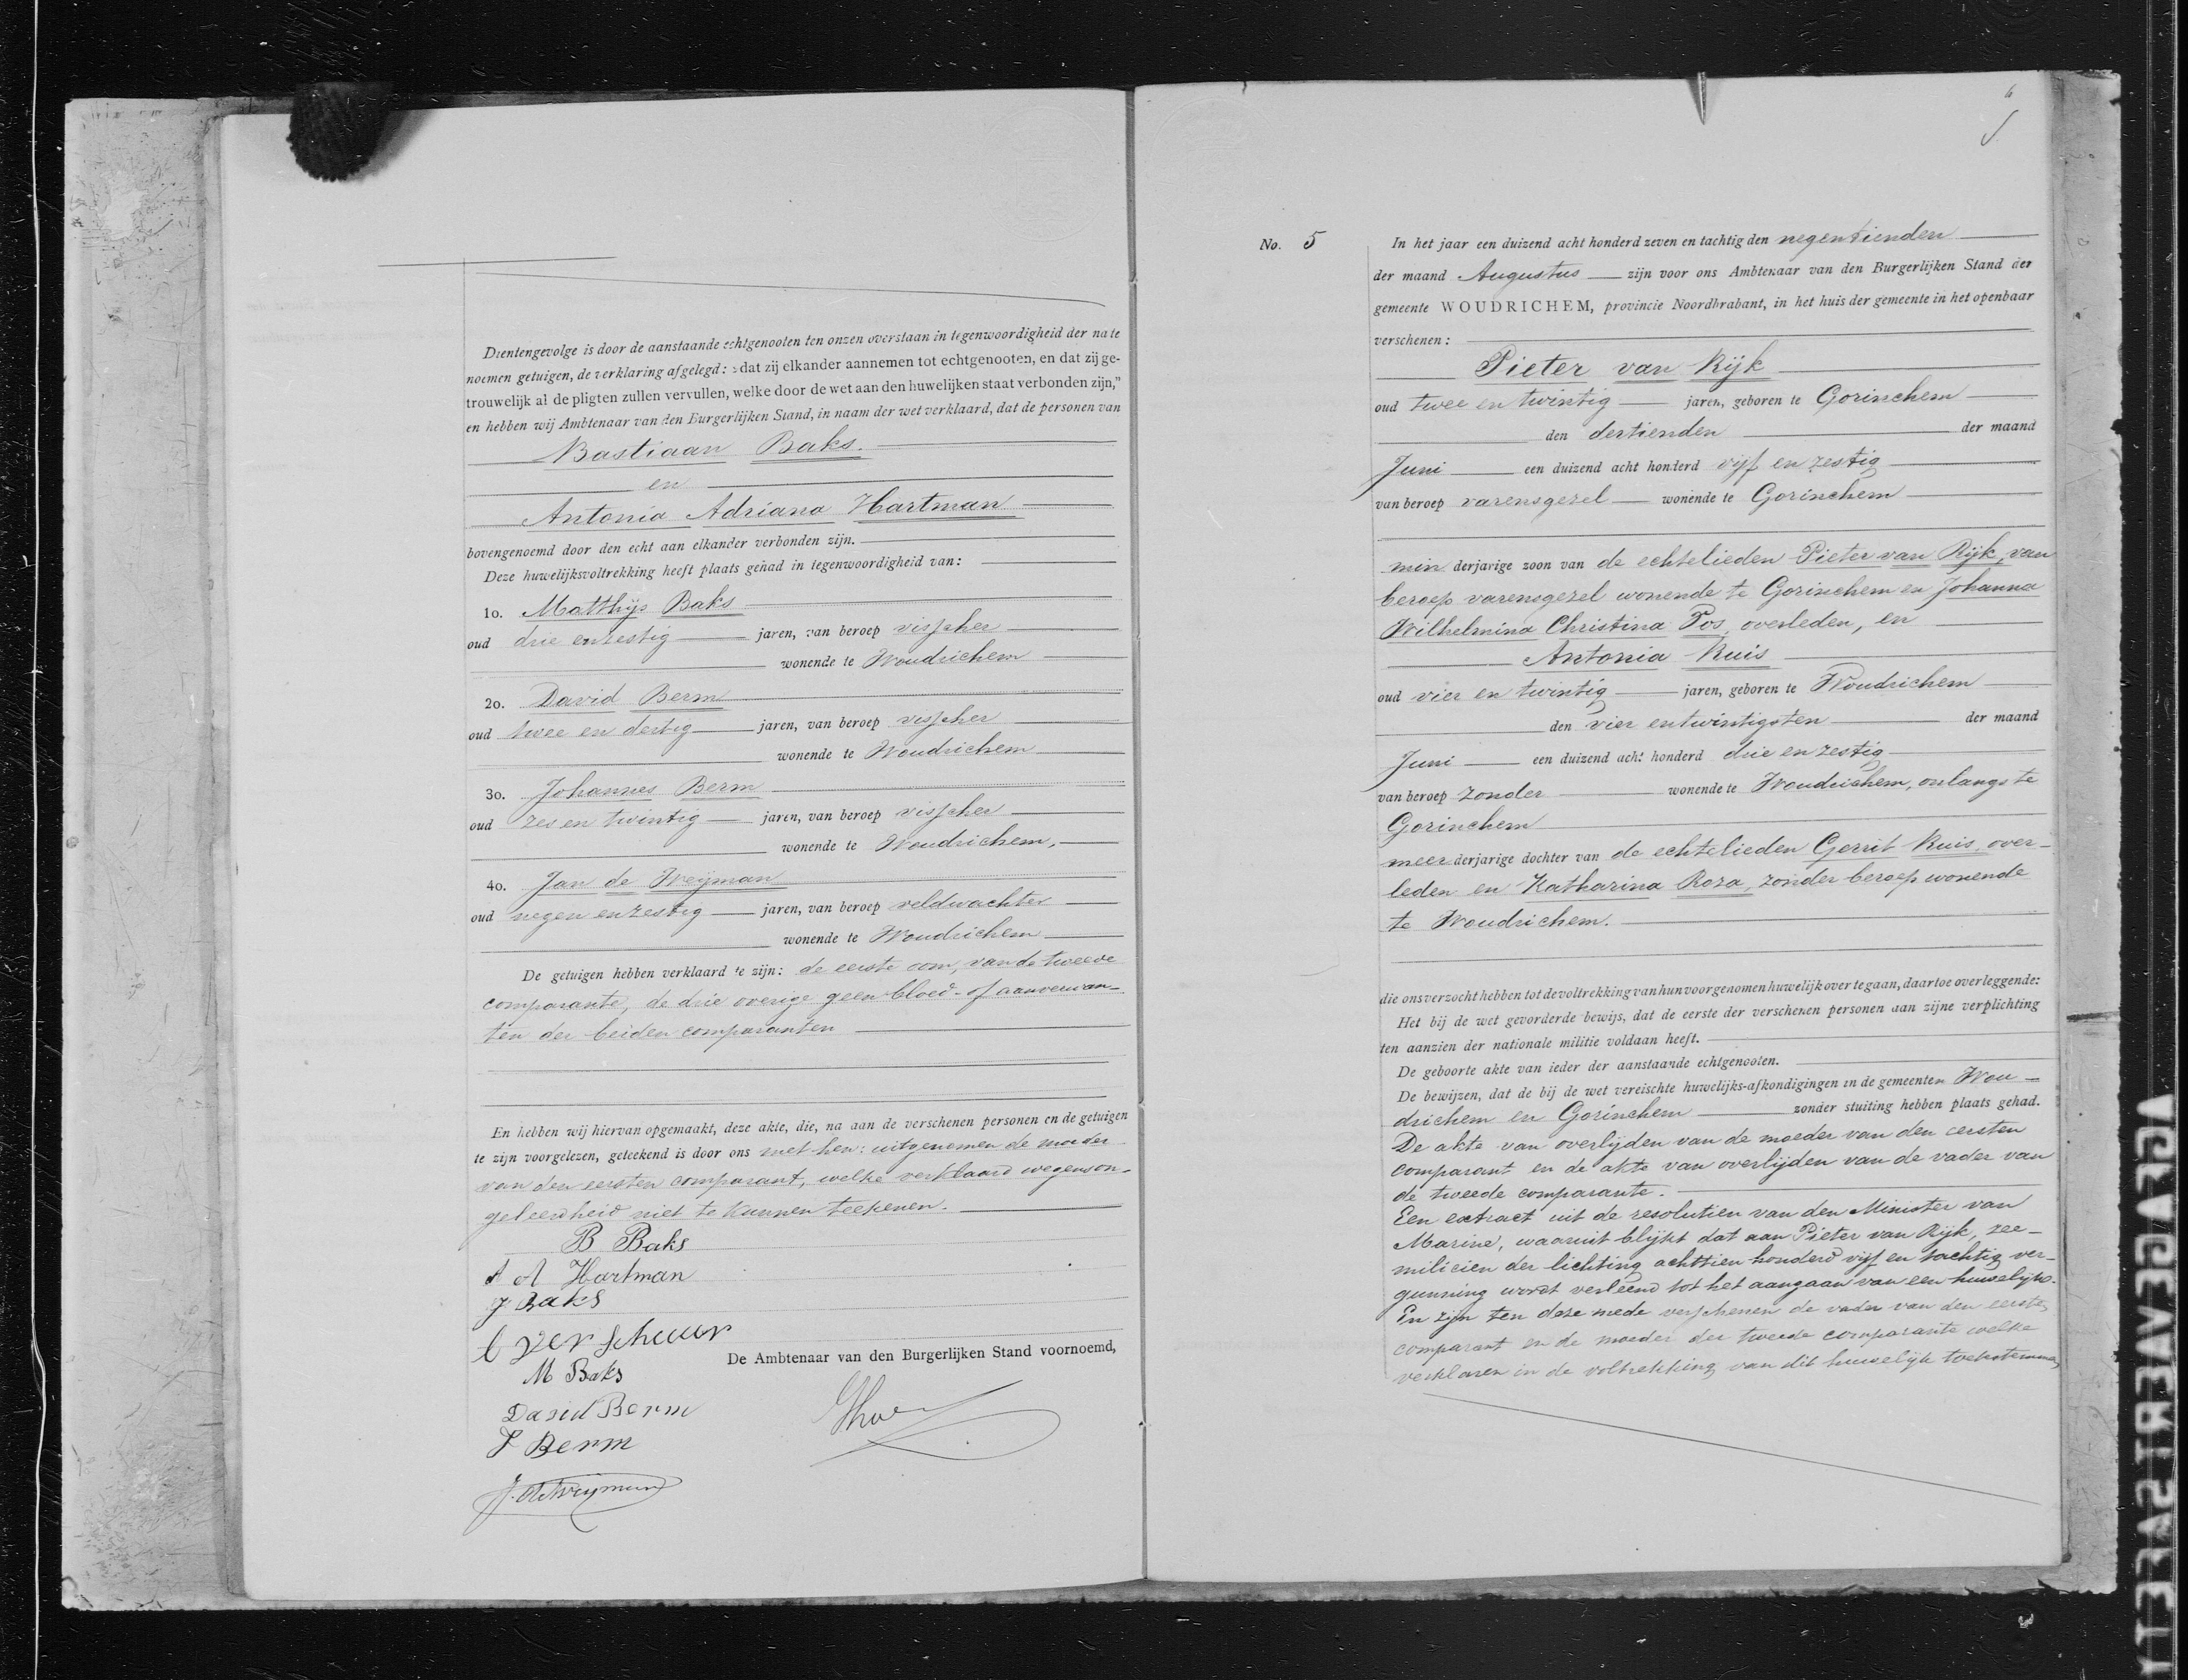 Dientengevolge is door de aanstaande echtgenooten ten onzen overstaan in tegenwoordigheid der na te
noemen getuigen, de verklaring afgelegd: „dat zij elkander aannemen tot echtgenooten, en dat zij ge-
trouwelijk al de pligten zullen vervullen, welke door de wet aan den huwelijken staat verbonden zijn,”
en hebben wij Ambtenaar van den Burgerlijken Stand, in naam der wet verklaard, dat de personen van
Bastiaan Baks.
en
Antonia Adriana Hartman
bovengenoemd door den echt aan elkander verbonden zijn.
Deze huwelijksvoltrekking heeft plaats gehad in tegenwoordigheid van:
1o. Matthijs Baks
oud drie en zestig jaren, van beroep visscher
wonende te Woudrichem
2o. David Berm
oud twee en dertig jaren, van beroep visscher
wonende te Woudrichem
3o. Johannes Berm
oud zes en twintig jaren, van beroep visscher
wonende te Woudrichem,
4o. Jan de Weijman
oud negen en zestig jaren, van beroep veldwachter
wonende te Woudrichem
De getuigen hebben verklaard te zijn: de eerste oom, van de tweede
comparante, de drie overige geen bloed- of aanverwan-
ten der beiden comparanten
En hebben wij hiervan opgemaakt, deze akte, die, na aan de verschenen personen en de getuigen
te zijn voorgelezen, geteekend is door ons met hen: uitgenomen de moeder
van den eersten comparant, welke verklaard wegens on-
geleerdheid niet te kunnen teekenen.
B Baks
A A Hartman
J Baks
C Verschuur
De Ambtenaar van den Burgerlijken Stand voornoemd,
M Baks
David Berm
J Berm
J. de Weijman
No. 5
In het jaar een duizend acht honderd zeven en tachtig den negentienden
der maand Augustus zijn voor ons Ambtenaar van den Burgerlijken Stand der
gemeente WOUDRICHEM, provincie Noordbrabant, in het huis der gemeente in het openbaar
verschenen:
Pieter van Rijk
oud twee en twintig jaren, geboren te Gorinchem
den dertienden der maand
Juni een duizend acht honderd vijf en zestig
van beroep varensgezel wonende te Gorinchem
min derjarige zoon van de echtelieden Pieter van Rijk, van
beroep varensgezel wonende te Gorinchem en Johanna
Wilhelmina Christina Pos, overleden, en
Antonia Ruis
oud vier en twintig jaren, geboren te Woudrichem
den vier en twintigsten der maand
Juni een duizend acht honderd drie en zestig
van beroep zonder wonende te Woudrichem, onlangs te
Gorinchem
meer derjarige dochter van de echtelieden Gerrit Ruis, over-
leden en Katharina Roza, zonder beroep wonende
te Woudrichem.
die ons verzocht hebben tot de voltrekking van hun voorgenomen huwelijk over te gaan, daartoe overleggende:
Het bij de wet gevorderde bewijs, dat de eerste der verschenen personen aan zijne verplichting
ten aanzien der nationale militie voldaan heeft.
De geboorte akte van ieder der aanstaande echtgenooten.
De bewijzen, dat de bij de wet vereischte huwelijks-afkondigingen in de gemeenten Wou-
drichem en Gorinchem zonder stuiting hebben plaats gehad.
De akte van overlijden van de moeder van den eersten
comparant en de akte van overlijden van de vader van
de tweede comparante.
Een extract uit de resolutien van den Minister van
Marine, waaruit blijkt dat aan Pieter van Rijk, zee-
milicien der lichting achttien honderd vijf en tachtig ver-
gunning wordt verleend tot het aangaan van een huwelijk.
En zijn ten deze mede verschenen de vader van den eerste
comparant en de moeder der tweede comparante welke
verklaren in de voltrekking van dit huwelijk toestemmen
AGFA-GEVAERT SAFETY